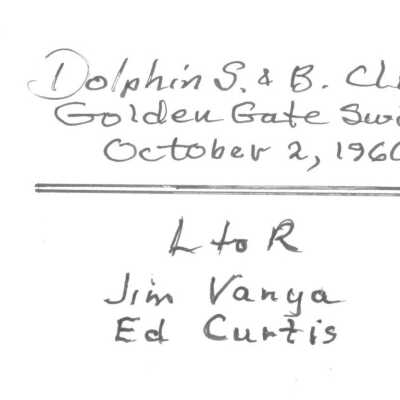 Dolphin S. & B. Cl
Golden Gate Swi
October 2, 1960
L to R
Jim Vanya
Ed Curtis